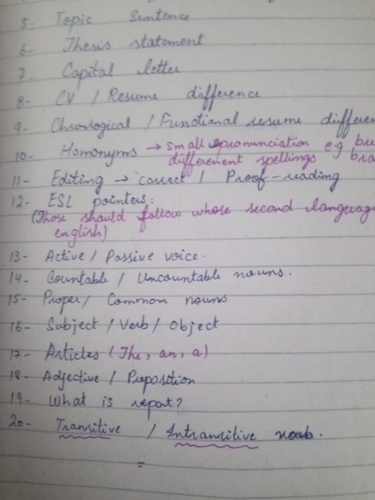 5- Topic Sentence
6- Thesis statement
7- Capital letter
8- CV / Resume difference
9- Chronlogical / Functional resume differen
10- Homonyms → small pronunciation e.g
different spellings
11- Editing → correct / Proof-reading
12- ESL pointers.
(Those should follow whose second language
english)
13- Active / Passive voice.
14- Countable / Uncountable nouns.
15- Proper / Common nouns
16- Subject / Verb / Object
17- Articles (The, an, a)
18- Adjective / Preposition
19- What is report?
20- Transitive / Intransitive